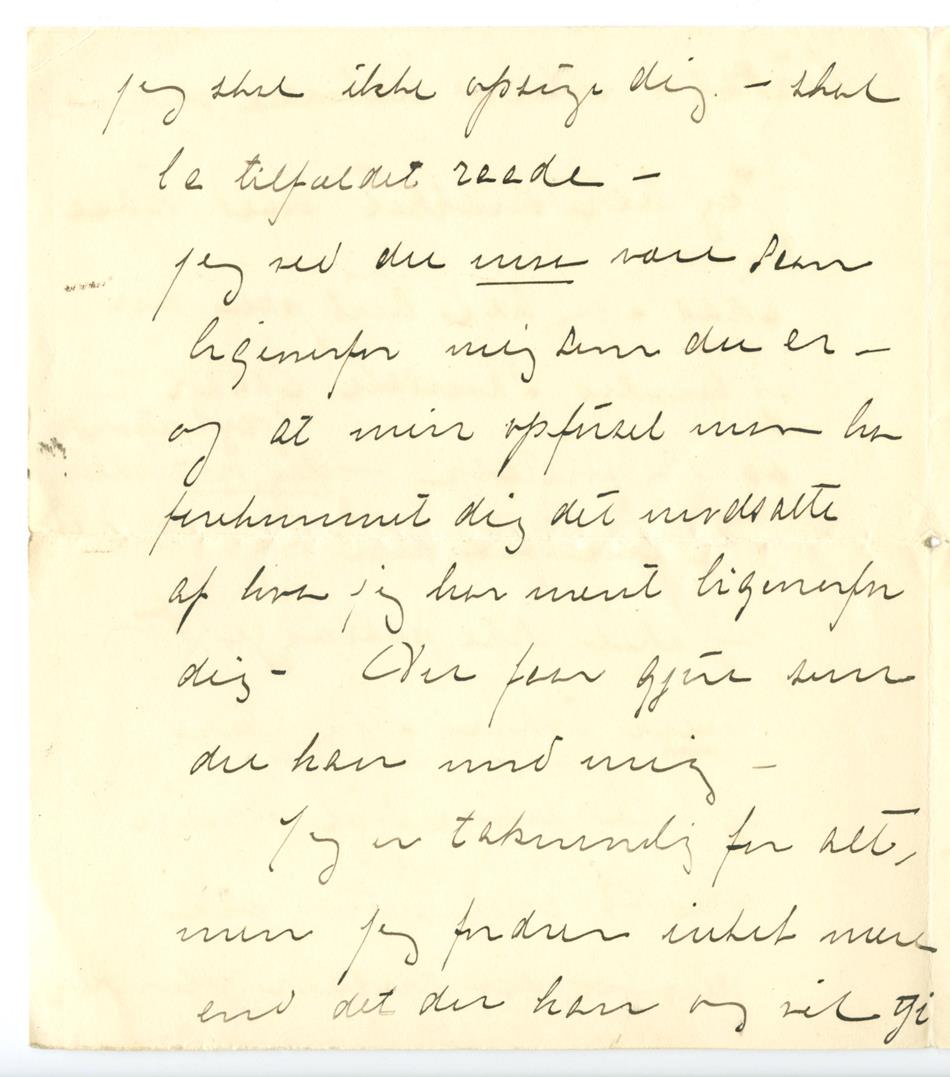 jeg skal ikke opsøge dig. – skal
la tilfældet raade –
jeg ved du maa være saan
ligeoverfor mig som du er –
og at min opførsel maa ha
forekommet dig det modsatte
af hva jeg har ment ligeoverfor
dig – Du faar gjøre som
du kan med mig –
Jeg er taknemlig for alt,
men jeg fordrer intet mere
end det du kan og vil gi